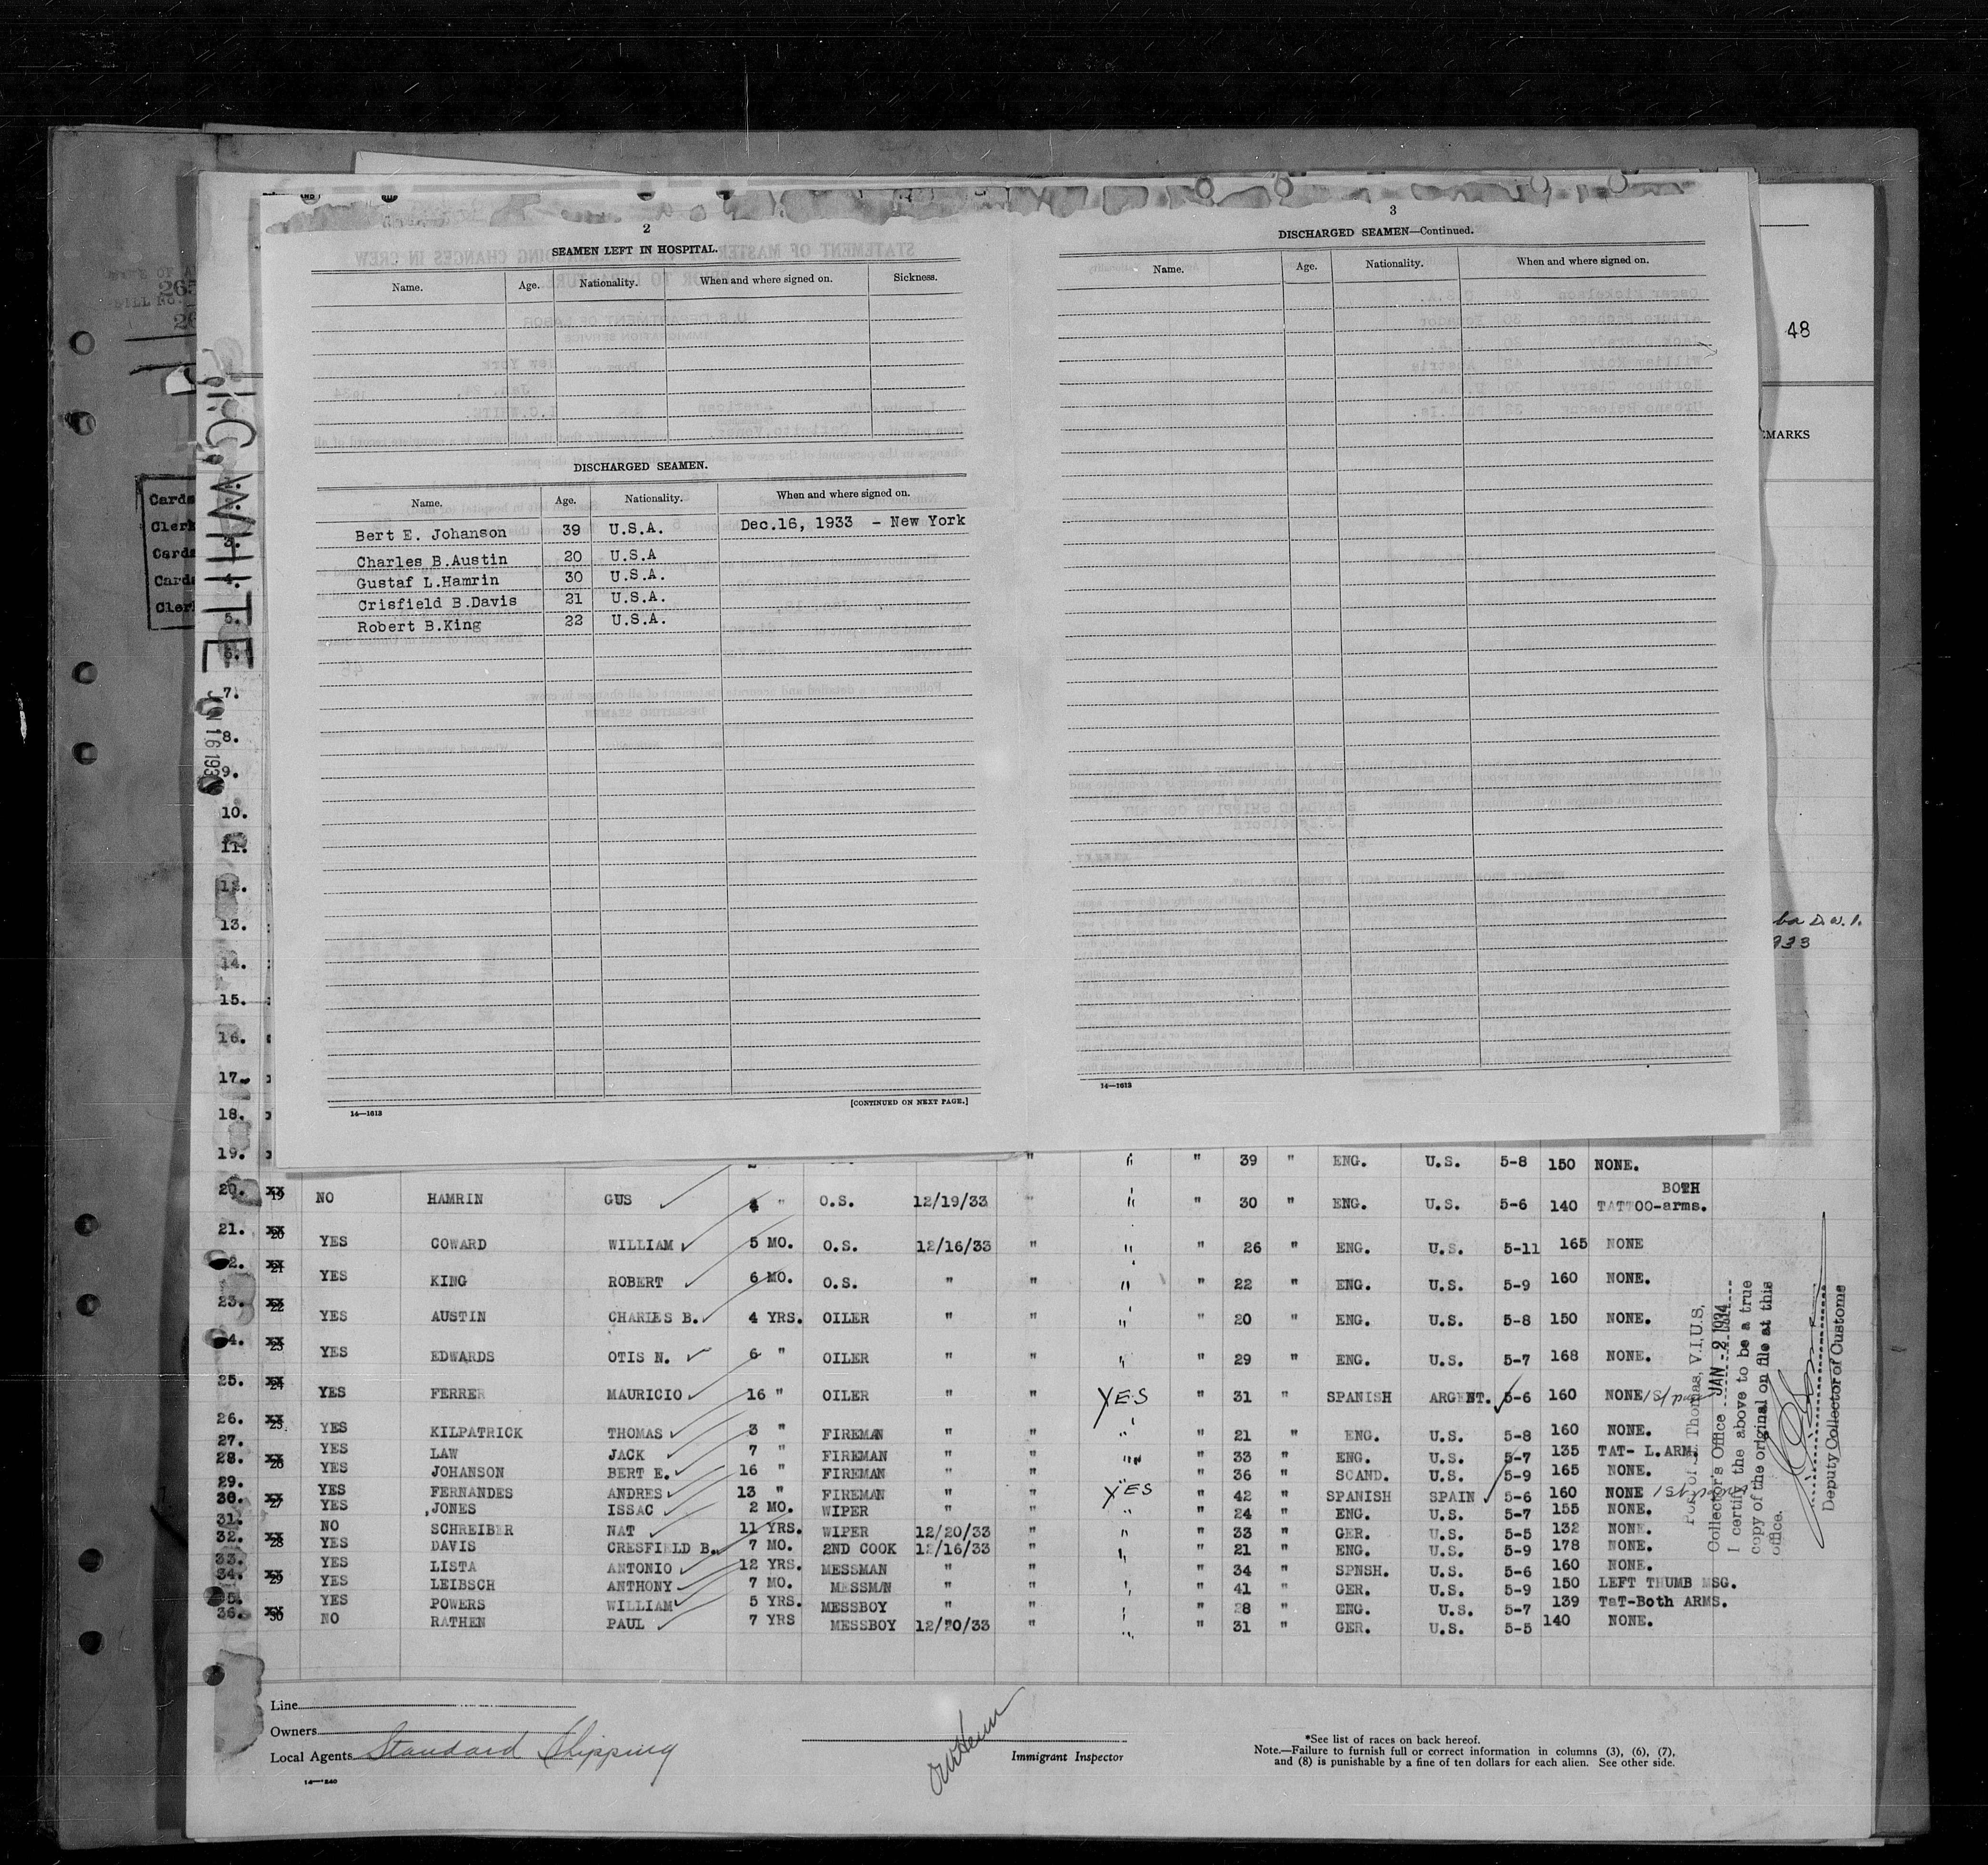 2
SEAMEN LEFT IN HOSPITAL.
Name. Age. Nationality. When and where signed on. Sickness.
DISCHARGED SEAMEN.
Name. Age. Nationality. When and where signed on.
Bert E. Johanson 39 U.S.A. Dec.16, 1933 - New York
Charles B.Austin 20 U.S.A
Gustaf L.Hamrin 30 U.S.A.
Crisfield B.Davis 21 U.S.A.
Robert B.King 22 U.S.A.
14—1613
[CONTINUED ON NEXT PAGE.]
3
DISCHARGED SEAMEN—Continued.
Name. Age. Nationality. When and where signed on.
14—1613
48
MARKS
ba D.W.I.
933
265
Cards
Clerk
Cards
Cards
Clerk
I.C. WHITE
JAN 16 193
3.
4.
5.
6.
7.
8.
9.
10.
11.
12.
13.
14.
15.
16.
17.
18.
19. " " " 39 " ENG. U.S. 5-8 150 NONE.
20. 19 NO HAMRIN GUS 4 " O.S. 12/19/33 " " " 30 " ENG. U.S. 5-6 140 BOTH TATTOO-arms.
21. 20 YES COWARD WILLIAM 5 MO. O.S. 12/16/33 " " " 26 " ENG. U.S. 5-11 165 NONE
22. 21 YES KING ROBERT 6 MO. O.S. " " " " 22 " ENG. U.S. 5-9 160 NONE.
23. 22 YES AUSTIN CHARLES B. 4 YRS. OILER " " " " 20 " ENG. U.S. 5-8 150 NONE.
24. 23 YES EDWARDS OTIS N. 6 " OILER " " " " 29 " ENG. U.S. 5-7 168 NONE.
25. 24 YES FERRER MAURICIO 16 " OILER " " YES " 31 " SPANISH ARGENT. 5-6 160 NONE
26. 25 YES KILPATRICK THOMAS 3 " FIREMAN " " " " 21 " ENG. U.S. 5-8 160 NONE.
27. YES LAW JACK 7 " FIREMAN " " " " 33 " ENG. U.S. 5-7 135 TAT- L.ARM.
28. 26 YES JOHANSON BERT E. 16 " FIREMAN " " " " 36 " SCAND. U.S. 5-9 165 NONE.
29. YES FERNANDES ANDRES 13 " FIREMAN " " YES " 42 " SPANISH SPAIN 5-6 160 NONE
30. 27 YES JONES ISSAC 2 MO. WIPER " " " " 24 " ENG. U.S. 5-7 155 NONE.
31. NO SCHREIBER NAT 11 YRS. WIPER 12/20/33 " " " 33 " GER. U.S. 5-5 132 NONE.
32. 28 YES DAVIS CRESFIELD B. 7 MO. 2ND COOK 12/16/33 " " " 21 " ENG. U.S. 5-9 178 NONE.
33. YES LISTA ANTONIO 12 YRS. MESSMAN " " " " 34 " SPNSH. U.S. 5-6 160 NONE.
34. 29 YES LEIBSCH ANTHONY 7 MO. MESSMAN " " " " 41 " GER. U.S. 5-9 150 LEFT THUMB MSG.
35. YES POWERS WILLIAM 5 YRS. MESSBOY " " " " 28 " ENG. U.S. 5-7 139 TaT-Both ARMS.
36. 30 NO RATHEN PAUL 7 YRS MESSBOY 12/20/33 " " " 31 " GER. U.S. 5-5 140 NONE.
Port of St Thomas, V.I,U.S,
Collector's Office JAN - 2 1934
I certify the above to be a true
copy of the original on file at this
office.
Deputy Collector of Customs
Line
Owners
Local Agents Standard Shipping
Immigrant Inspector
*See list of races on back hereof.
Note.—Failure to furnish full or correct information in columns (3), (6), (7),
and (8) is punishable by a fine of ten dollars for each alien. See other side.